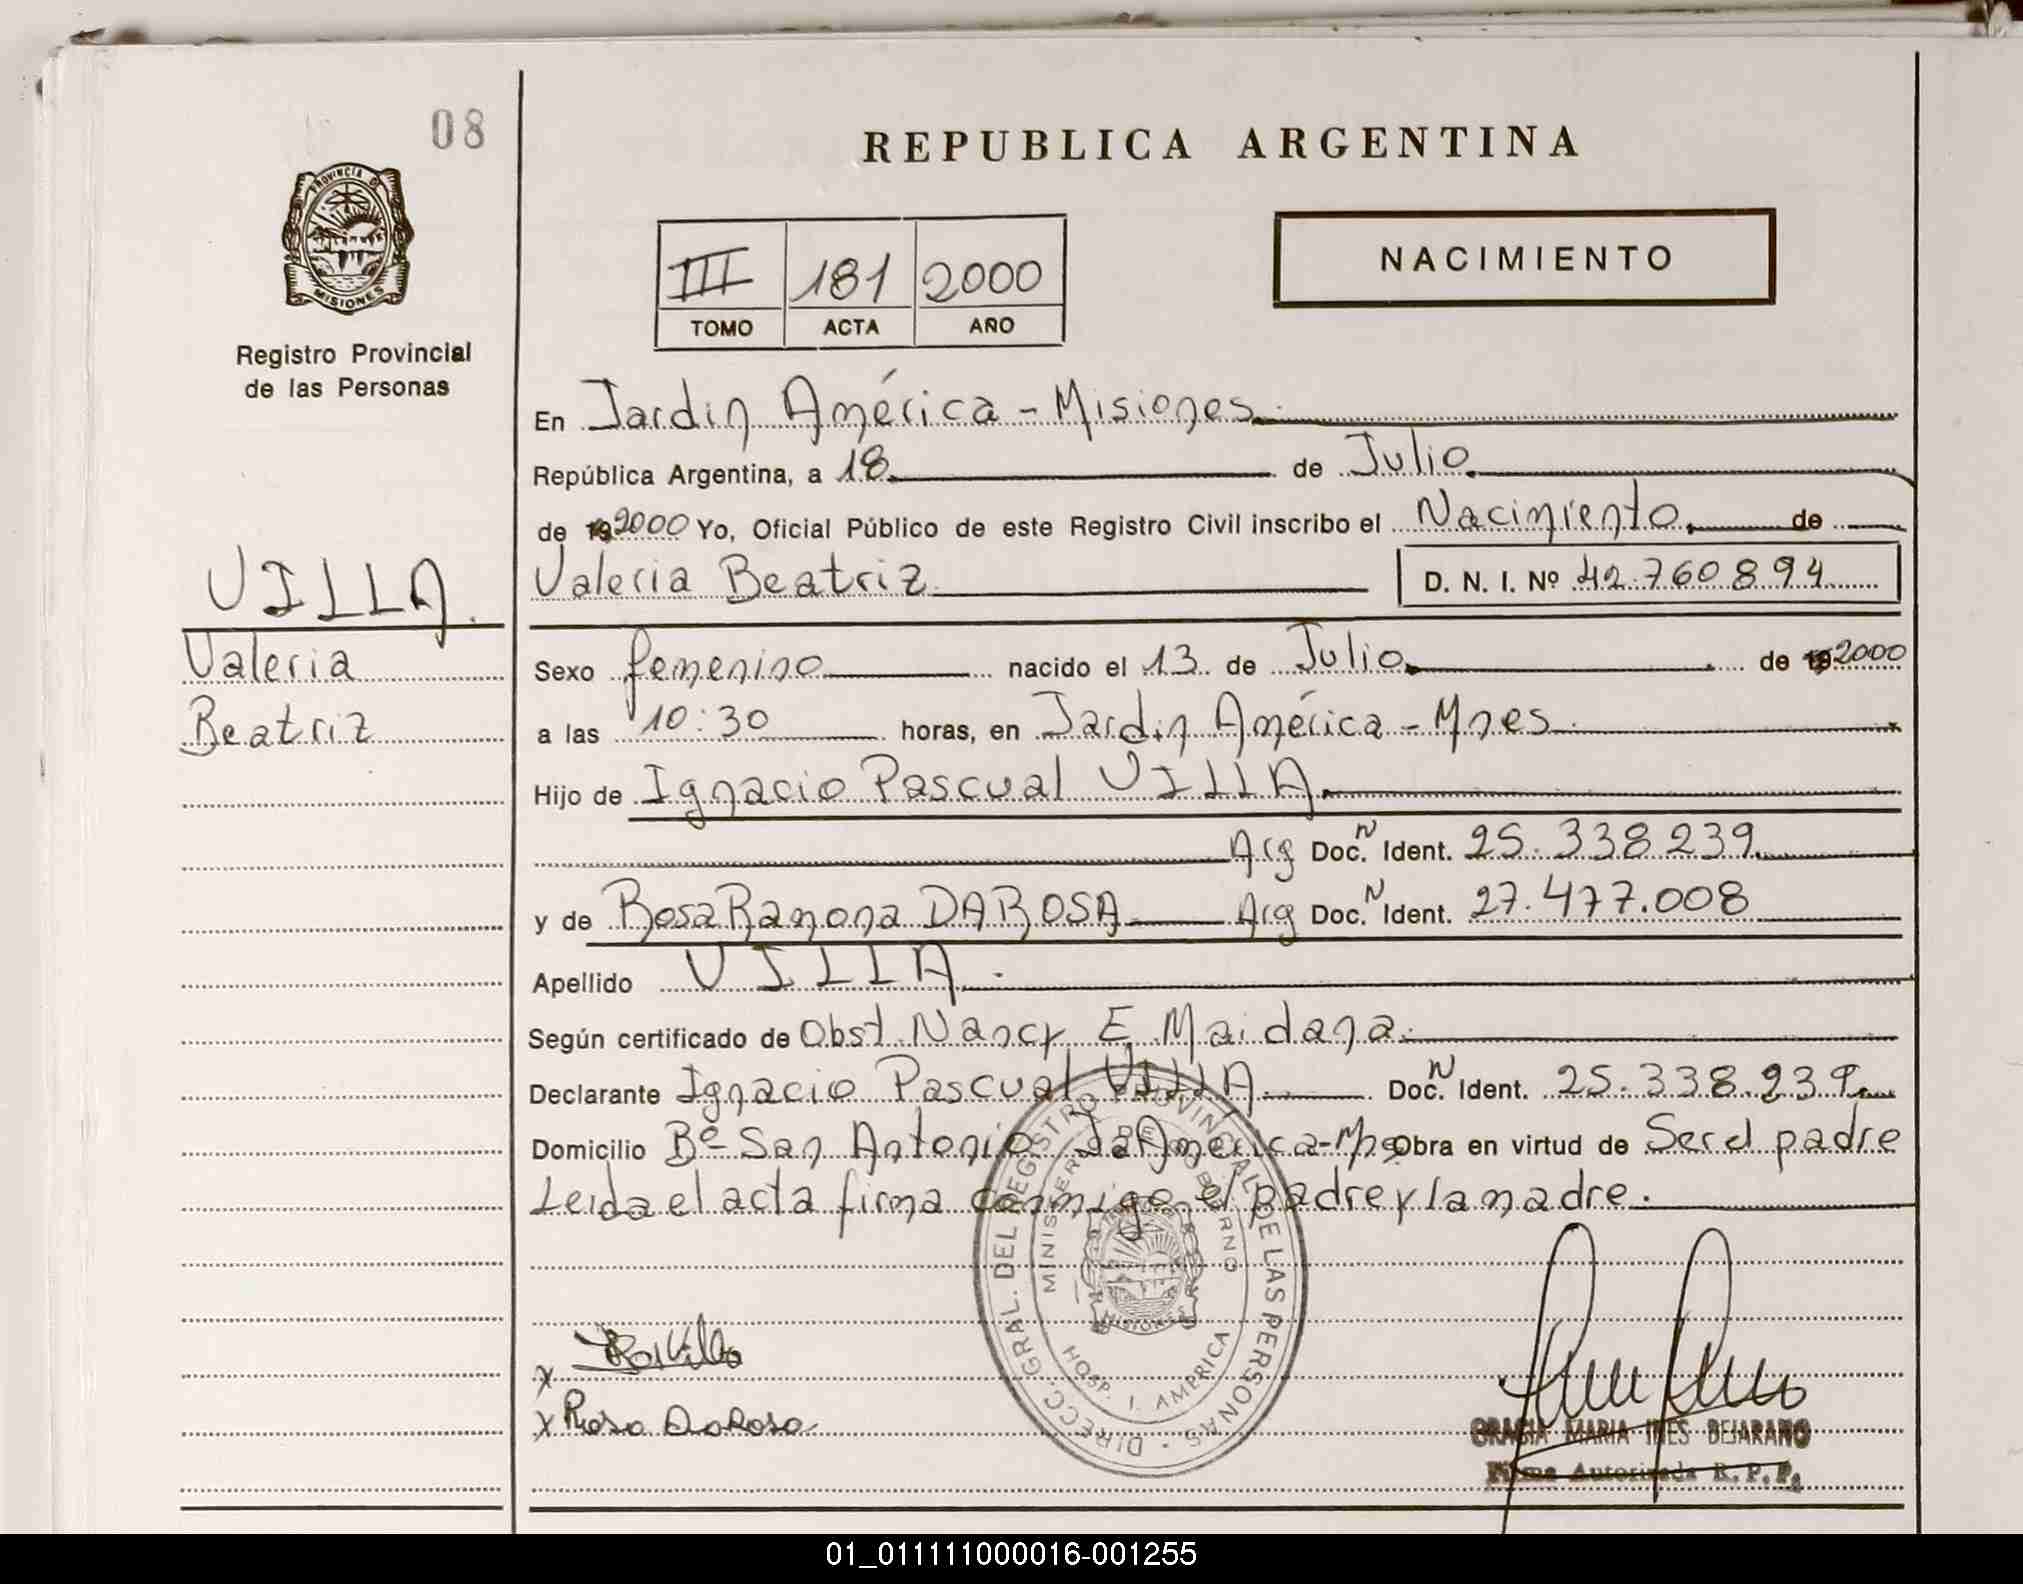 08
REPUBLICA ARGENTINA
PROVINCIA D
MISIONES
III 181 2000
TOMO ACTA AÑO
NACIMIENTO
Registro Provincial
de las Personas
En Jardin América - Misiones
República Argentina, a 18 de Julio
de 19 2000 Yo, Oficial Público de este Registro Civil inscribo el Nacimiento de
VILLA
Valeria Beatriz D. N. I. Nº 42.760894
Valeria
Sexo femenino nacido el 13 de Julio de 19 2000
Beatriz
a las 10:30 horas, en Jardin América - Mnes
Hijo de Ignacio Pascual VILLA
Arg Doc. N Ident. 25.338239
y de Rosa Ramona DAROSA Arg Doc. N Ident. 27.477.008
Apellido VILLA
Según certificado de Obst. Nancy E. Maidana
Declarante Ignacio Pascual VILLA Doc. N Ident. 25.338.239
Domicilio Bº San Antonio Jª América - Mnes Obra en virtud de Ser el padre
Leida el acta firma conmigo el padre y la madre.
DIRECC. GRAL. DEL REGISTRO PROVINCIAL DE LAS PERSONAS
MINISTERIO DE GOBIERNO
MISIONES
HOSP. J. AMERICA
x
x Rosa DaRosa
GRACIA MARIA INES BEJARANO
Firma Autorizada R. P. P.
01_011111000016-001255